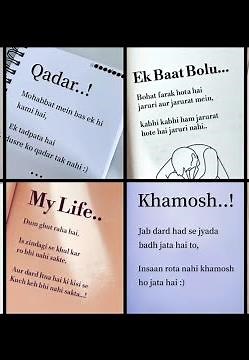 Qadar..!
Mohabbat mein bas ek hi
kami hai,
Ek tadpata hai
dusre ko qadar tak nahi :)
Ek Baat Bolu...
Bohat farak hota hai
jaruri aur jarurat mein,
kabhi kabhi ham jarurat
hote hai jaruri nahi..
My Life..
Dum ghut raha hai.
Is zindagi se khul kar
ro bhi nahi sakte.
Aur dard itna hai ki kisi se
Kuch keh bhi nahi sakta..!
Khamosh..!
Jab dard had se jyada
badh jata hai to,
Insaan rota nahi khamosh
ho jata hai :)